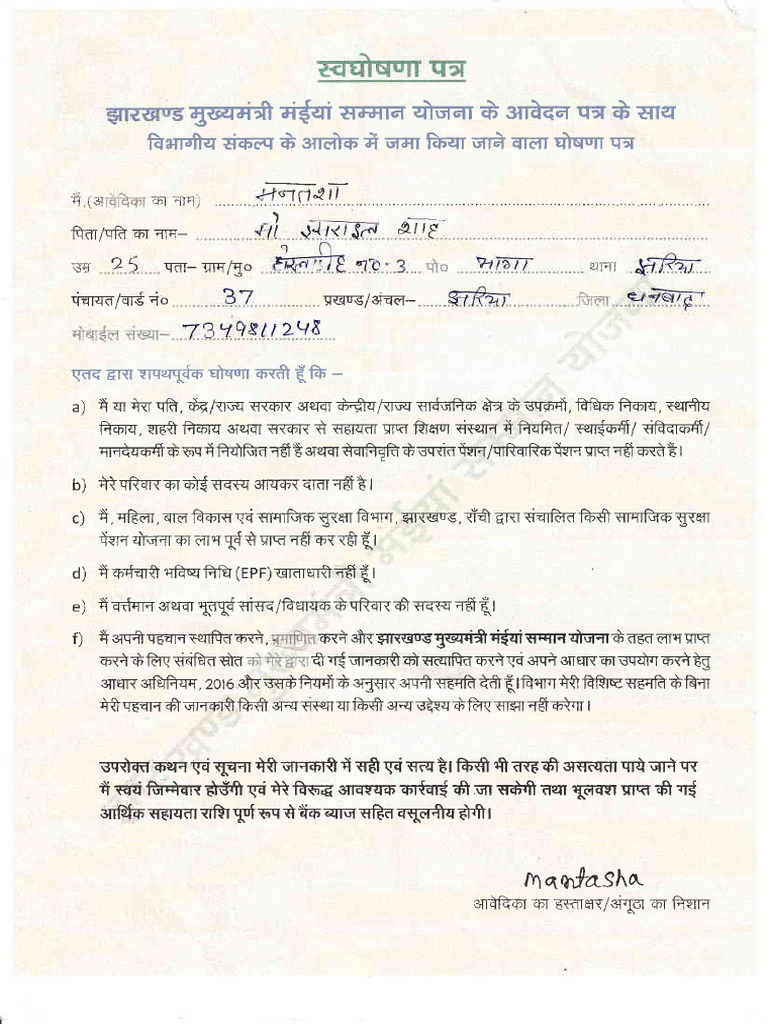 स्वघोषणा पत्र
झारखण्ड मुख्यमंत्री मंईयां सम्मान योजना के आवेदन पत्र के साथ
विभागीय संकल्प के आलोक में जमा किया जाने वाला घोषणा पत्र
मैं,(आवेदिका का नाम) मनतशा
पिता/पति का नाम– मो शाह
उम्र 25 पता– ग्राम/मु० न०-3 पो० भागा थाना झरिया
पंचायत/वार्ड नं० 37 प्रखण्ड/अंचल– झरिया जिला धनबाद
मोबाईल संख्या– 7349811248
एतद द्वारा शपथपूर्वक घोषणा करती हूँ कि –
a) मैं या मेरा पति, केंद्र/राज्य सरकार अथवा केन्द्रीय/राज्य सार्वजनिक क्षेत्र के उपक्रमों, विधिक निकाय, स्थानीय
निकाय, शहरी निकाय अथवा सरकार से सहायता प्राप्त शिक्षण संस्थान में नियमित/ स्थाईकर्मी/ संविदाकर्मी/
मानदेयकर्मी के रूप में नियोजित नहीं हैं अथवा सेवानिवृत्ति के उपरांत पेंशन/पारिवारिक पेंशन प्राप्त नहीं करते हैं।
b) मेरे परिवार का कोई सदस्य आयकर दाता नहीं है।
c) मैं, महिला, बाल विकास एवं सामाजिक सुरक्षा विभाग, झारखण्ड, राँची द्वारा संचालित किसी सामाजिक सुरक्षा
पेंशन योजना का लाभ पूर्व से प्राप्त नहीं कर रही हूँ।
d) मैं कर्मचारी भविष्य निधि (EPF) खाताधारी नहीं हूँ।
e) मैं वर्त्तमान अथवा भूतपूर्व सांसद/विधायक के परिवार की सदस्य नहीं हूँ।
f) मैं अपनी पहचान स्थापित करने, प्रमाणित करने और झारखण्ड मुख्यमंत्री मंईयां सम्मान योजना के तहत लाभ प्राप्त
करने के लिए संबंधित स्रोत को मेरे द्वारा दी गई जानकारी को सत्यापित करने एवं अपने आधार का उपयोग करने हेतु
आधार अधिनियम, 2016 और उसके नियमों के अनुसार अपनी सहमति देती हूँ। विभाग मेरी विशिष्ट सहमति के बिना
मेरी पहचान की जानकारी किसी अन्य संस्था या किसी अन्य उद्देश्य के लिए साझा नहीं करेगा।
उपरोक्त कथन एवं सूचना मेरी जानकारी में सही एवं सत्य है। किसी भी तरह की असत्यता पाये जाने पर
मैं स्वयं जिम्मेवार होउँगी एवं मेरे विरूद्ध आवश्यक कार्रवाई की जा सकेगी तथा भूलवश प्राप्त की गई
आर्थिक सहायता राशि पूर्ण रूप से बैंक ब्याज सहित वसूलनीय होगी।
Mantasha
आवेदिका का हस्ताक्षर/अंगूठा का निशान
झारखण्ड मुख्यमंत्री मंईयां सम्मान योजना